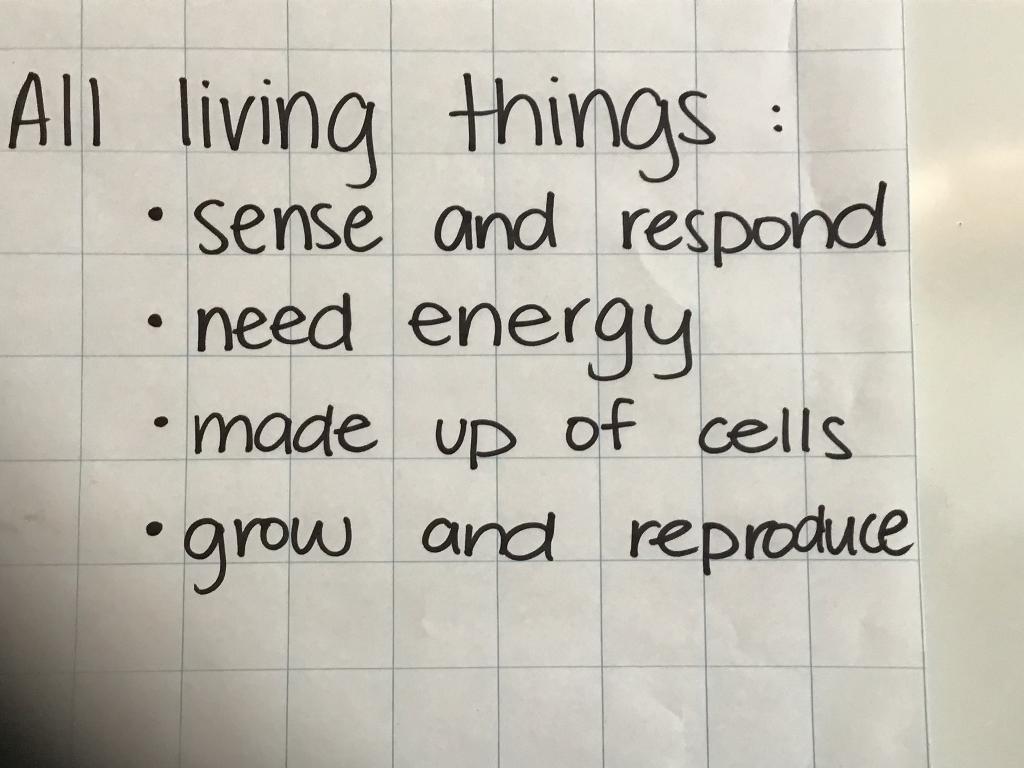 All living things :
• sense and respond
• need energy
• made up of cells
• grow and reproduce